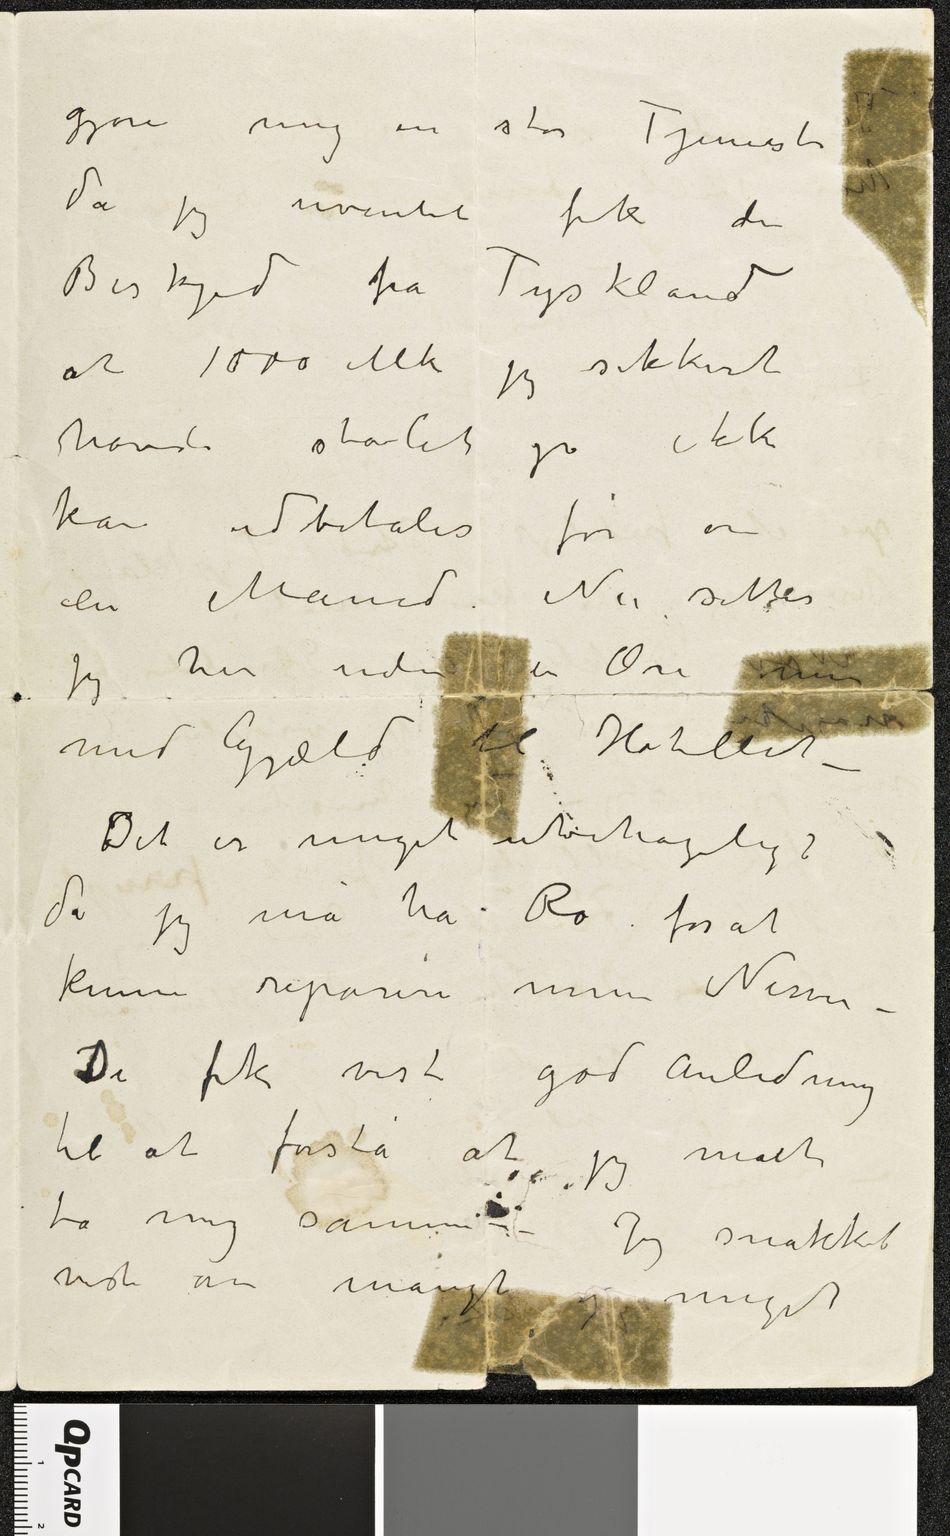 gjøre mig en stor Tjeneste
da jeg uventet fik den
Beskjed fra Tyskland
at 1000 Mk jeg sikkert
havde stolet på ikke
kan udbetales før om
en Maaned. Nu sitter
jeg her uden en Øre men
med Gjæld til Hotellet –
Det er meget ubehageligt
da jeg må ha Ro forat
kunne reparere mine Nerver –
De fik vist god Anledning
til at forstå at jeg måtte
ta mig sammen – Jeg snakket
vist om mangt og meget
QPCARD
1
2